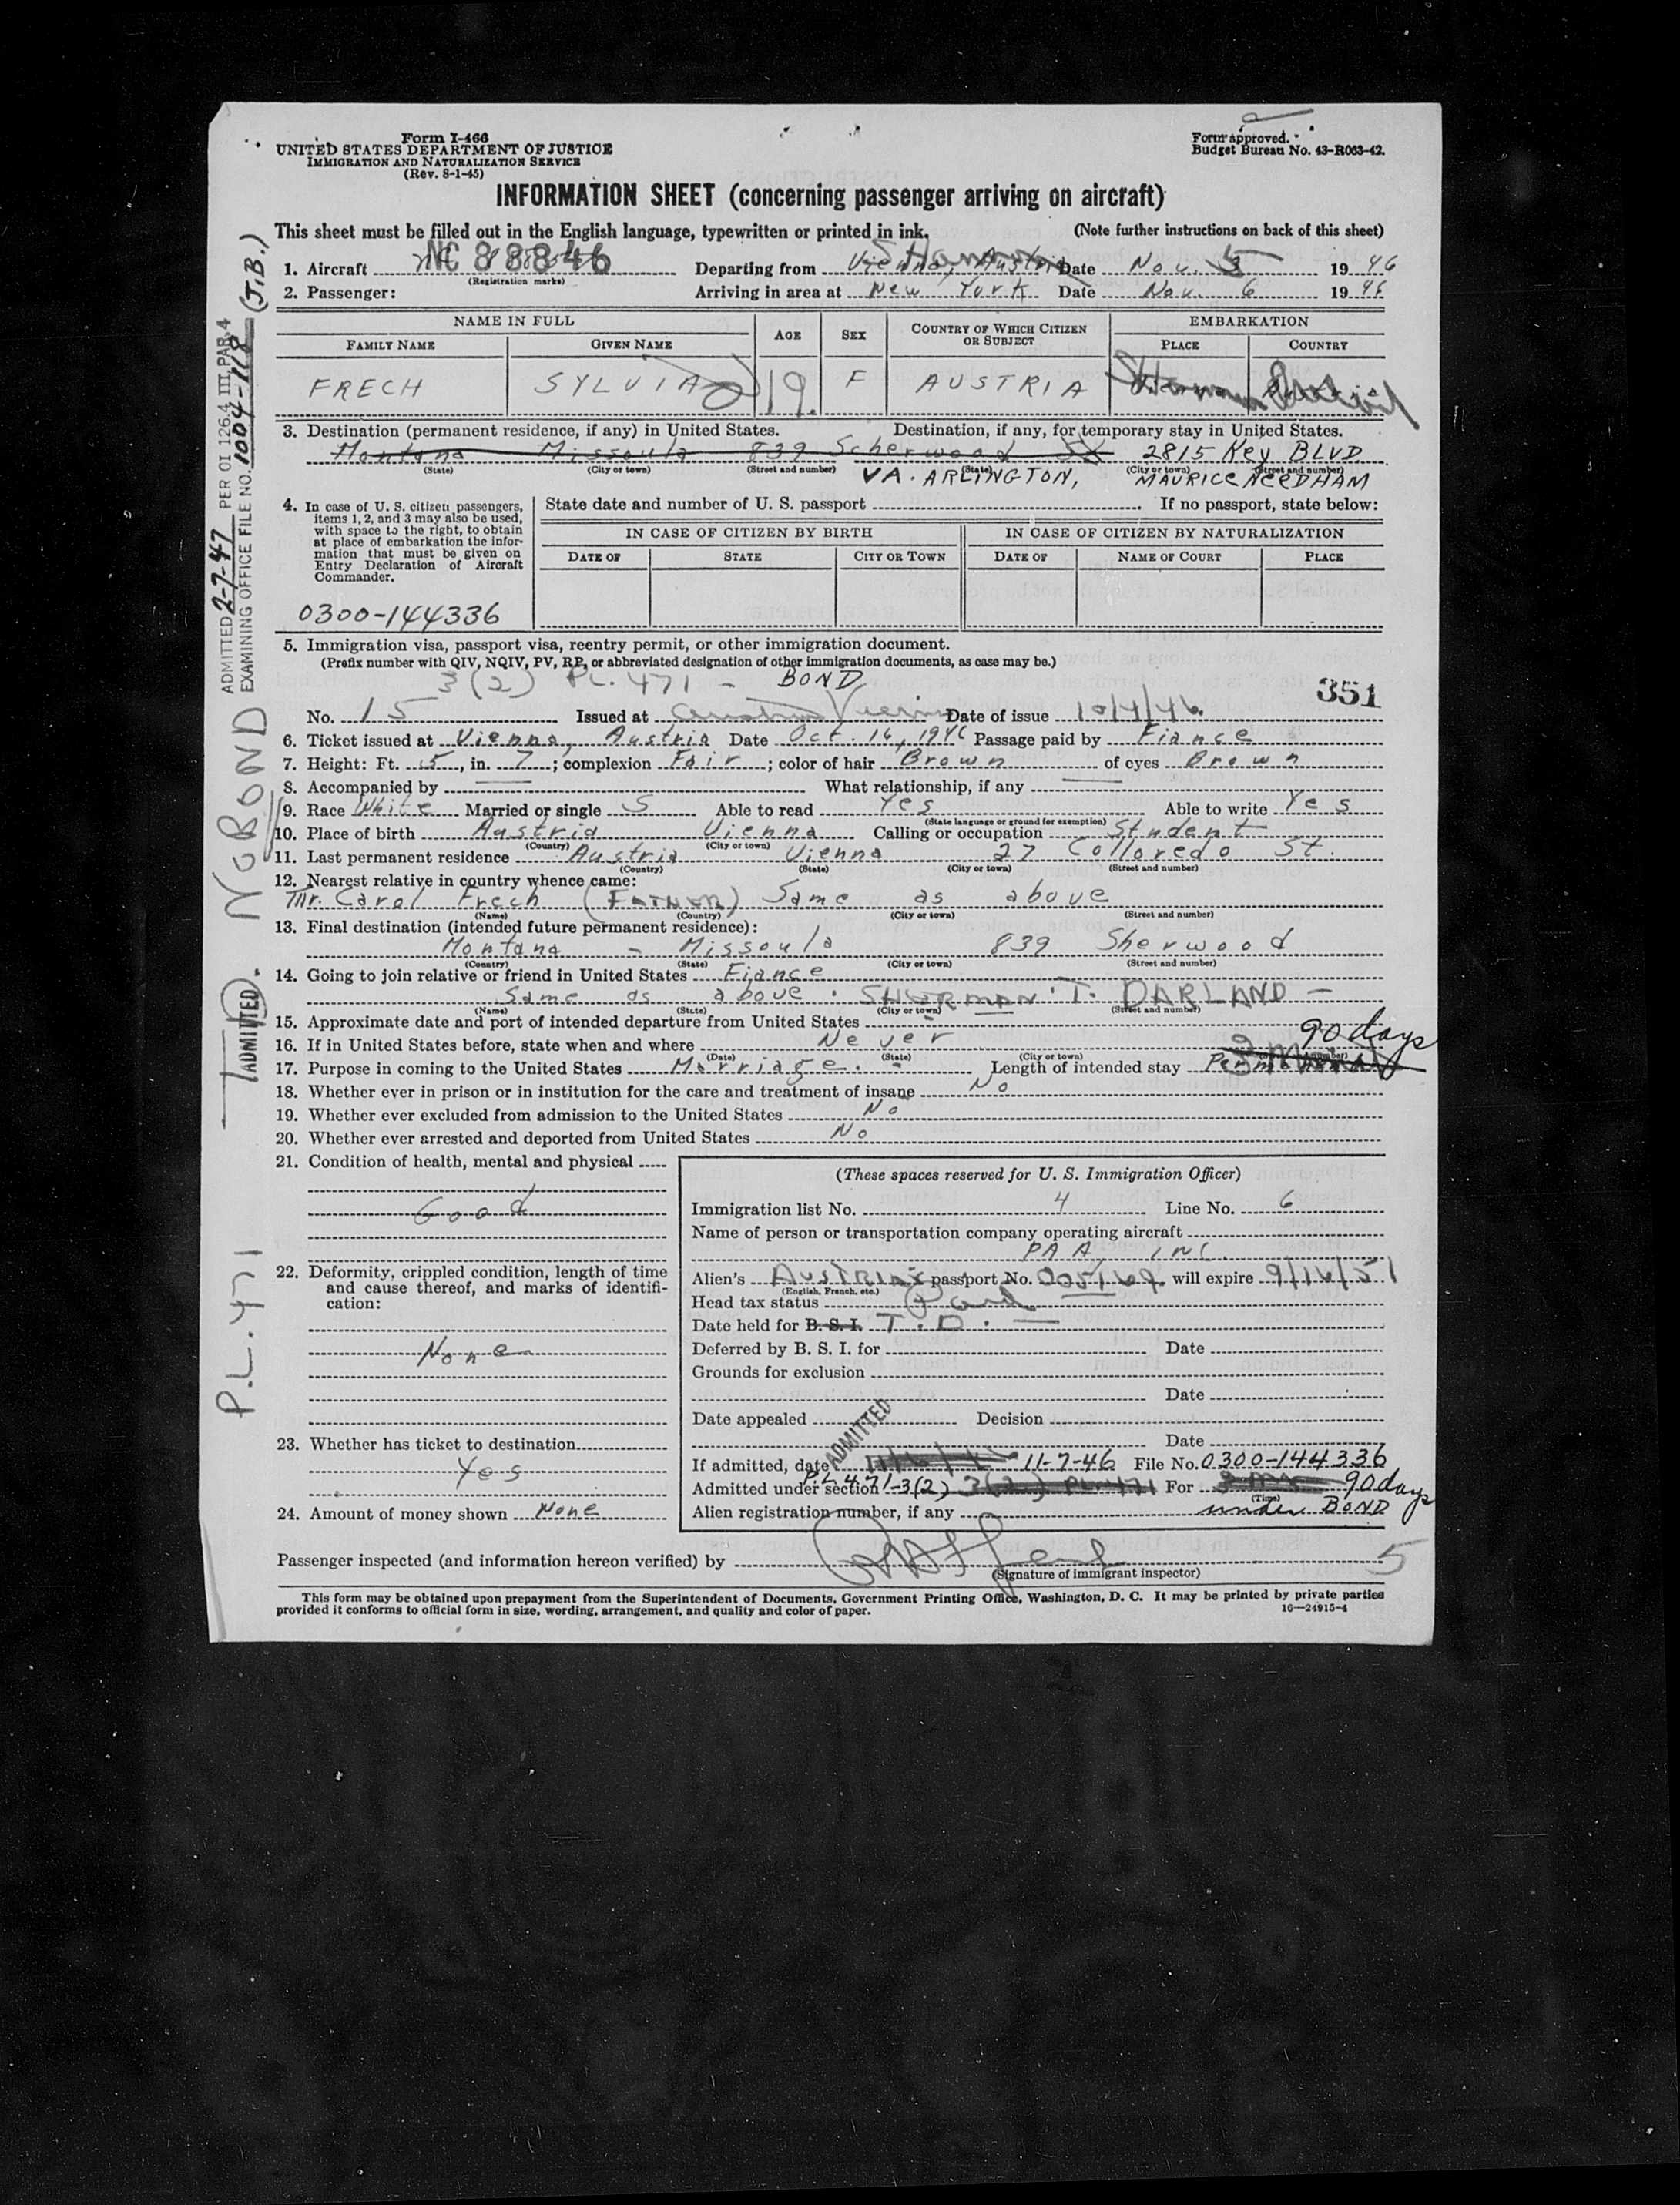 Form I-466
UNITED STATES DEPARTMENT OF JUSTICE
IMMIGRATION AND NATURALIZATION SERVICE
(Rev. 8-1-45)
Form approved.
Budget Bureau No. 43-R063-42.
INFORMATION SHEET (concerning passenger arriving on aircraft)
This sheet must be filled out in the English language, typewritten or printed in ink. (Note further instructions on back of this sheet)
1. Aircraft NC 88846 Departing from Vienna, Austria Shannon Date Nov. 5 1946
(Registration marks)
2. Passenger: Arriving in area at New York Date Nov. 6 1946
NAME IN FULL AGE SEX COUNTRY OF WHICH CITIZEN OR SUBJECT EMBARKATION
FAMILY NAME GIVEN NAME PLACE COUNTRY
FRECH SYLVIA 19 F AUSTRIA
3. Destination (permanent residence, if any) in United States. Destination, if any, for temporary stay in United States.
Montana Missoula 839 Scherwood St 2815 Key BLVD
(State) (City or town) (Street and number) (State) (City or town) (Street and number)
VA. ARLINGTON, MAURICE NEEDHAM
4. In case of U. S. citizen passengers, items 1, 2, and 3 may also be used, with space to the right, to obtain at place of embarkation the information that must be given on Entry Declaration of Aircraft Commander.
State date and number of U. S. passport If no passport, state below:
IN CASE OF CITIZEN BY BIRTH IN CASE OF CITIZEN BY NATURALIZATION
DATE OF STATE CITY OR TOWN DATE OF NAME OF COURT PLACE
0300-144336
5. Immigration visa, passport visa, reentry permit, or other immigration document.
(Prefix number with QIV, NQIV, PV, RP, or abbreviated designation of other immigration documents, as case may be.)
3(2) PL. 471 - BOND
351
No. 15 Issued at Austria Vienna Date of issue 10/4/46
6. Ticket issued at Vienna, Austria Date Oct. 16, 1946 Passage paid by Fiance
7. Height: Ft. 5, in. 7; complexion Fair; color of hair Brown of eyes Brown
8. Accompanied by What relationship, if any
9. Race White Married or single S Able to read Yes Able to write Yes
(State language or ground for exemption)
10. Place of birth Austria Vienna Calling or occupation Student
(Country) (City or town)
11. Last permanent residence Austria Vienna 27 Colloredo St.
(Country) (State) (City or town) (Street and number)
12. Nearest relative in country whence came:
Mr. Carol Frech (FATHER) Same as above
(Name) (Country) (City or town) (Street and number)
13. Final destination (intended future permanent residence):
Montana - Missoula 839 Sherwood
(Country) (State) (City or town) (Street and number)
14. Going to join relative or friend in United States Fiance
Same as above. SHERMAN T. DARLAND -
(Name) (State) (City or town) (Street and number)
15. Approximate date and port of intended departure from United States
16. If in United States before, state when and where Never
(Date) (State) (City or town)
90 days
17. Purpose in coming to the United States Marriage. Length of intended stay
18. Whether ever in prison or in institution for the care and treatment of insane No
19. Whether ever excluded from admission to the United States No
20. Whether ever arrested and deported from United States No
21. Condition of health, mental and physical
Good
22. Deformity, crippled condition, length of time and cause thereof, and marks of identification:
None
23. Whether has ticket to destination
Yes
24. Amount of money shown None
(These spaces reserved for U. S. Immigration Officer)
Immigration list No. 4 Line No. 6
Name of person or transportation company operating aircraft
PAA, INC.
Alien's AUSTRIAN passport No. will expire 9/16/51
(English, French, etc.)
Head tax status Paid
Date held for B. S. I. T. D. -
Deferred by B. S. I. for Date
Grounds for exclusion
Date
Date appealed Decision
Date
ADMITTED
If admitted, date 11-7-46 File No. 0300-144336
Admitted under section P.L. 471-3(2) 3(2) PL-471 For 90 days
(Time)
Alien registration number, if any under BOND
Passenger inspected (and information hereon verified) by
(Signature of immigrant inspector)
5
This form may be obtained upon prepayment from the Superintendent of Documents, Government Printing Office, Washington, D. C. It may be printed by private parties
provided it conforms to official form in size, wording, arrangement, and quality and color of paper. 16—24915-4
ADMITTED 2-7-47 PER OI 126.4 III, PAR. 4
EXAMINING OFFICE FILE NO. 1004-118 (J.B.)
NO BOND
ADMITTED.
P.L. 471